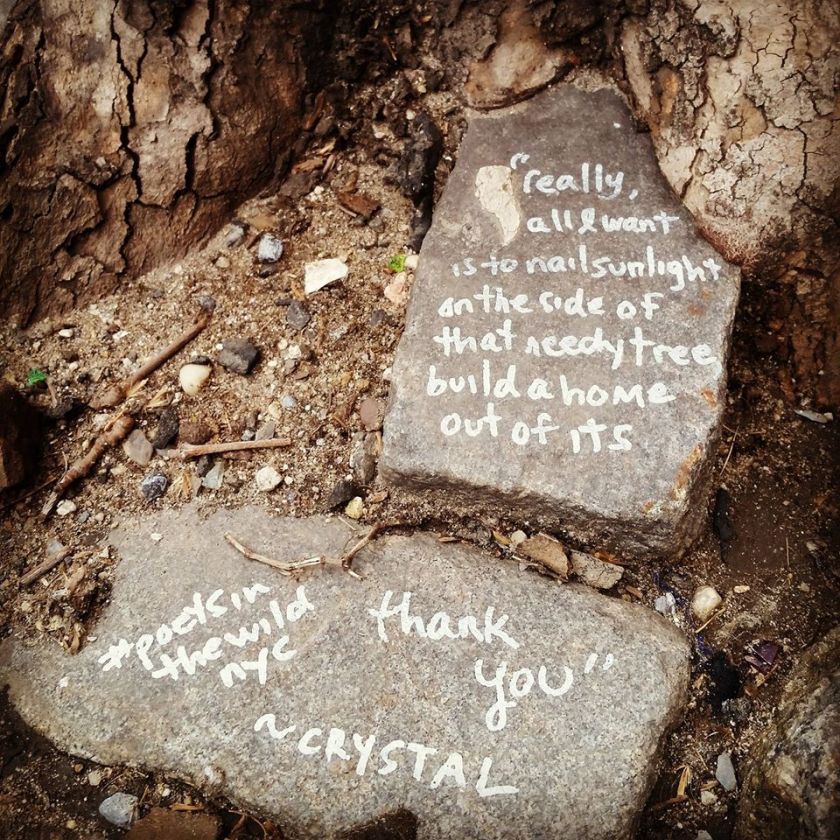 "really,
all I want
is to nail sunlight
on the side of
that needy tree
build a home
out of its
thank
you"
~CRYSTAL
#poetsin
thewild
nyc